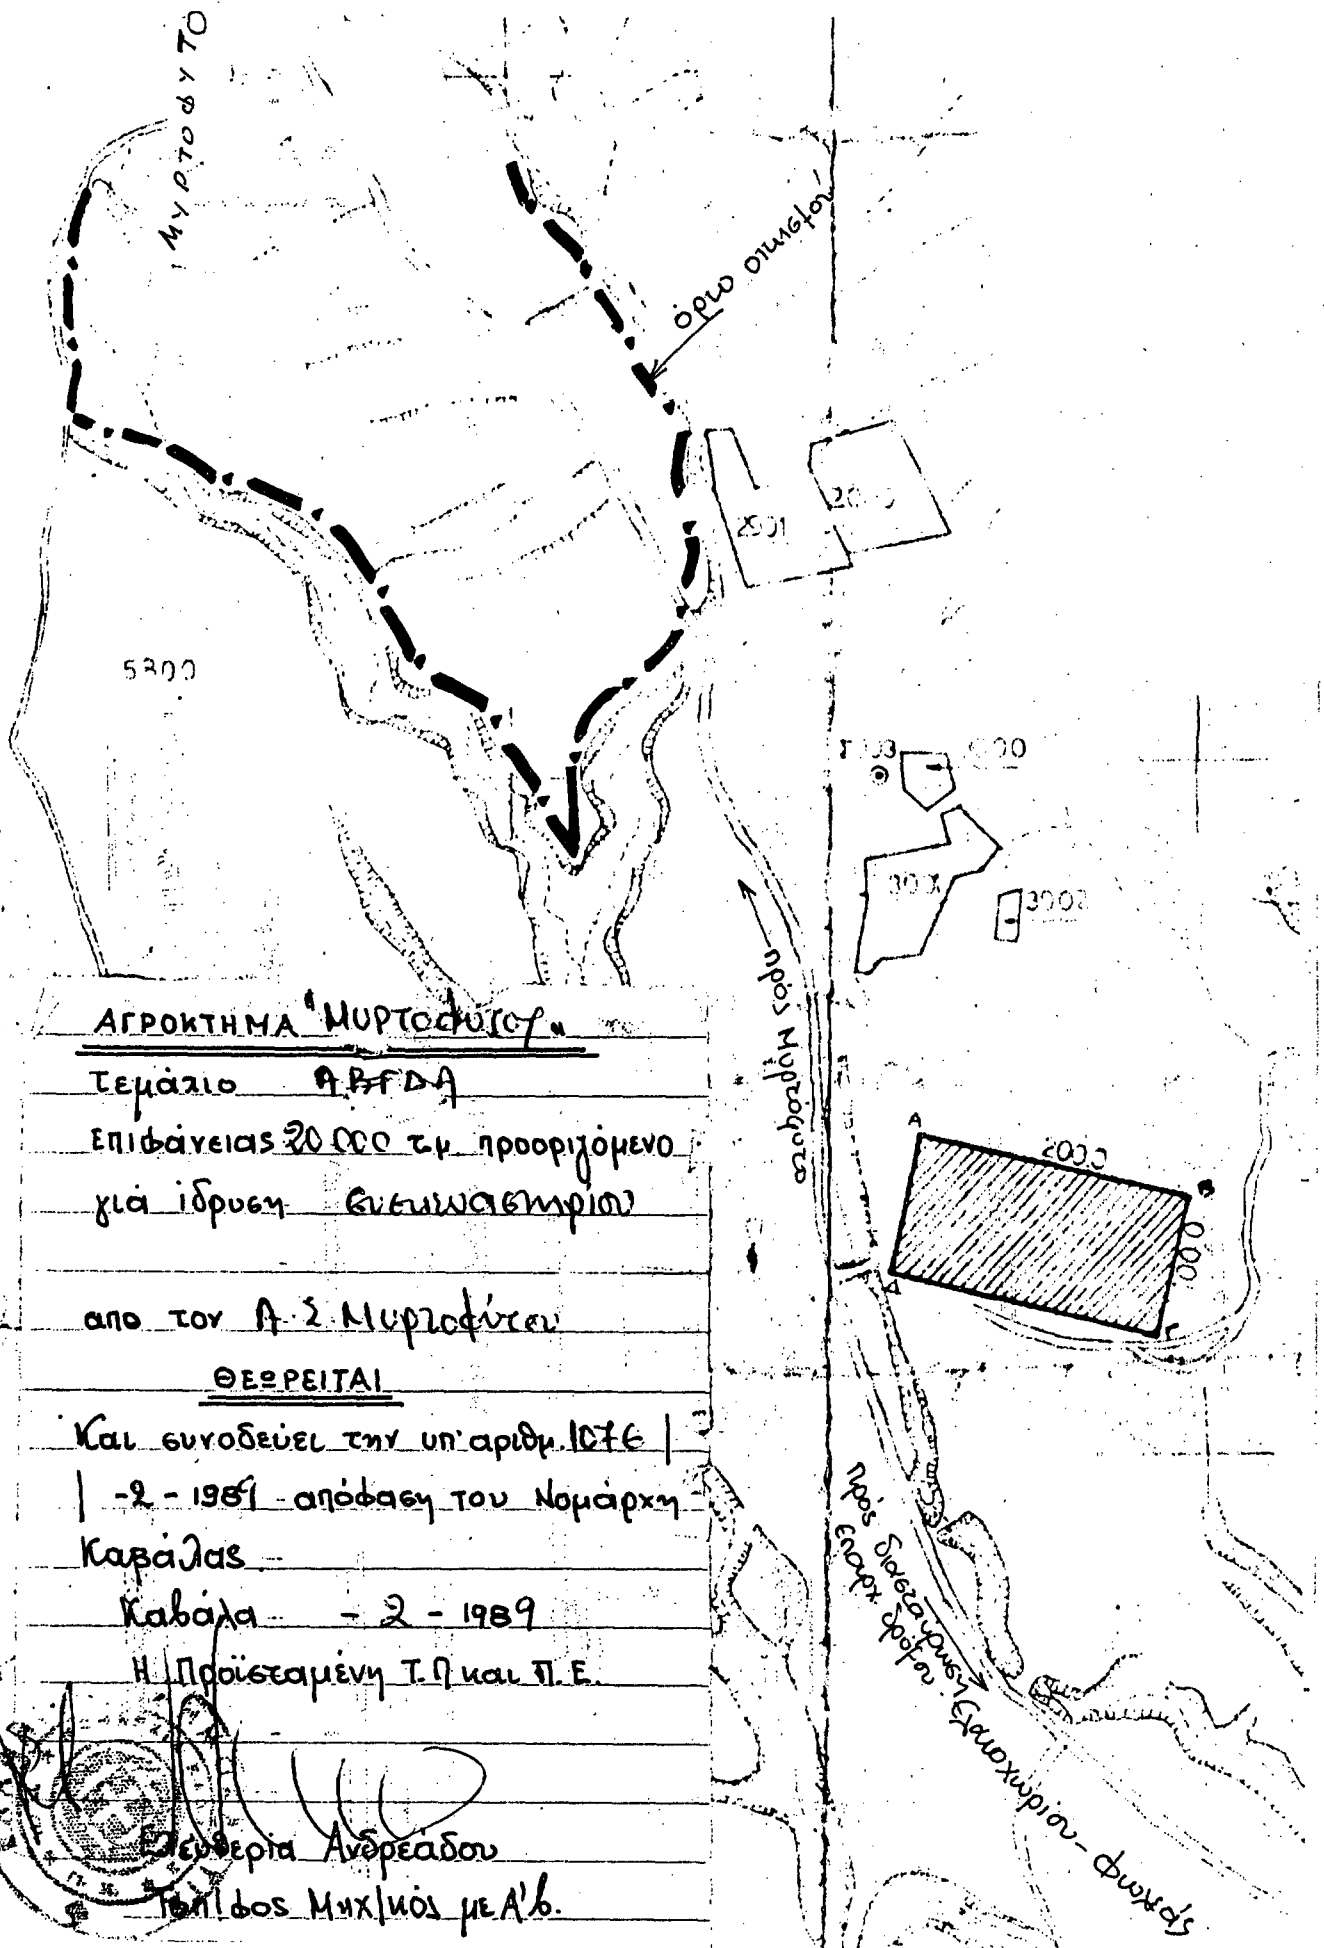 ΜΥΡΤΟΦΥΤΟ
όριο οικισμού
2901
5300
3002
πρός Μυρτόφυτο
Α
Β
Γ
Δ
ΑΓΡΟΚΤΗΜΑ "Μυρτοφύτου"
τεμάχιο ΑΒΓΔΑ
Επιφάνειας 20 000 τ.μ. προοριζόμενο
γιά ίδρυση συσκευαστηρίου
απο τον Α.Σ. Μυρτοφύτου
ΘΕΩΡΕΙΤΑΙ
Και συνοδεύει την υπ'αριθμ. 1076 |
| -2 - 1989 απόφαση του Νομάρχη
Καβάλας
Καβάλα - 2 - 1989
Η Προϊσταμένη Τ.Π και Π.Ε.
Ελευθερία Ανδρεάδου
Τοπ/φος Μηχ/κός με Α'β.
πρός διασταύρωση
επαρχ. δρόμου. Ελαιοχωρίου -